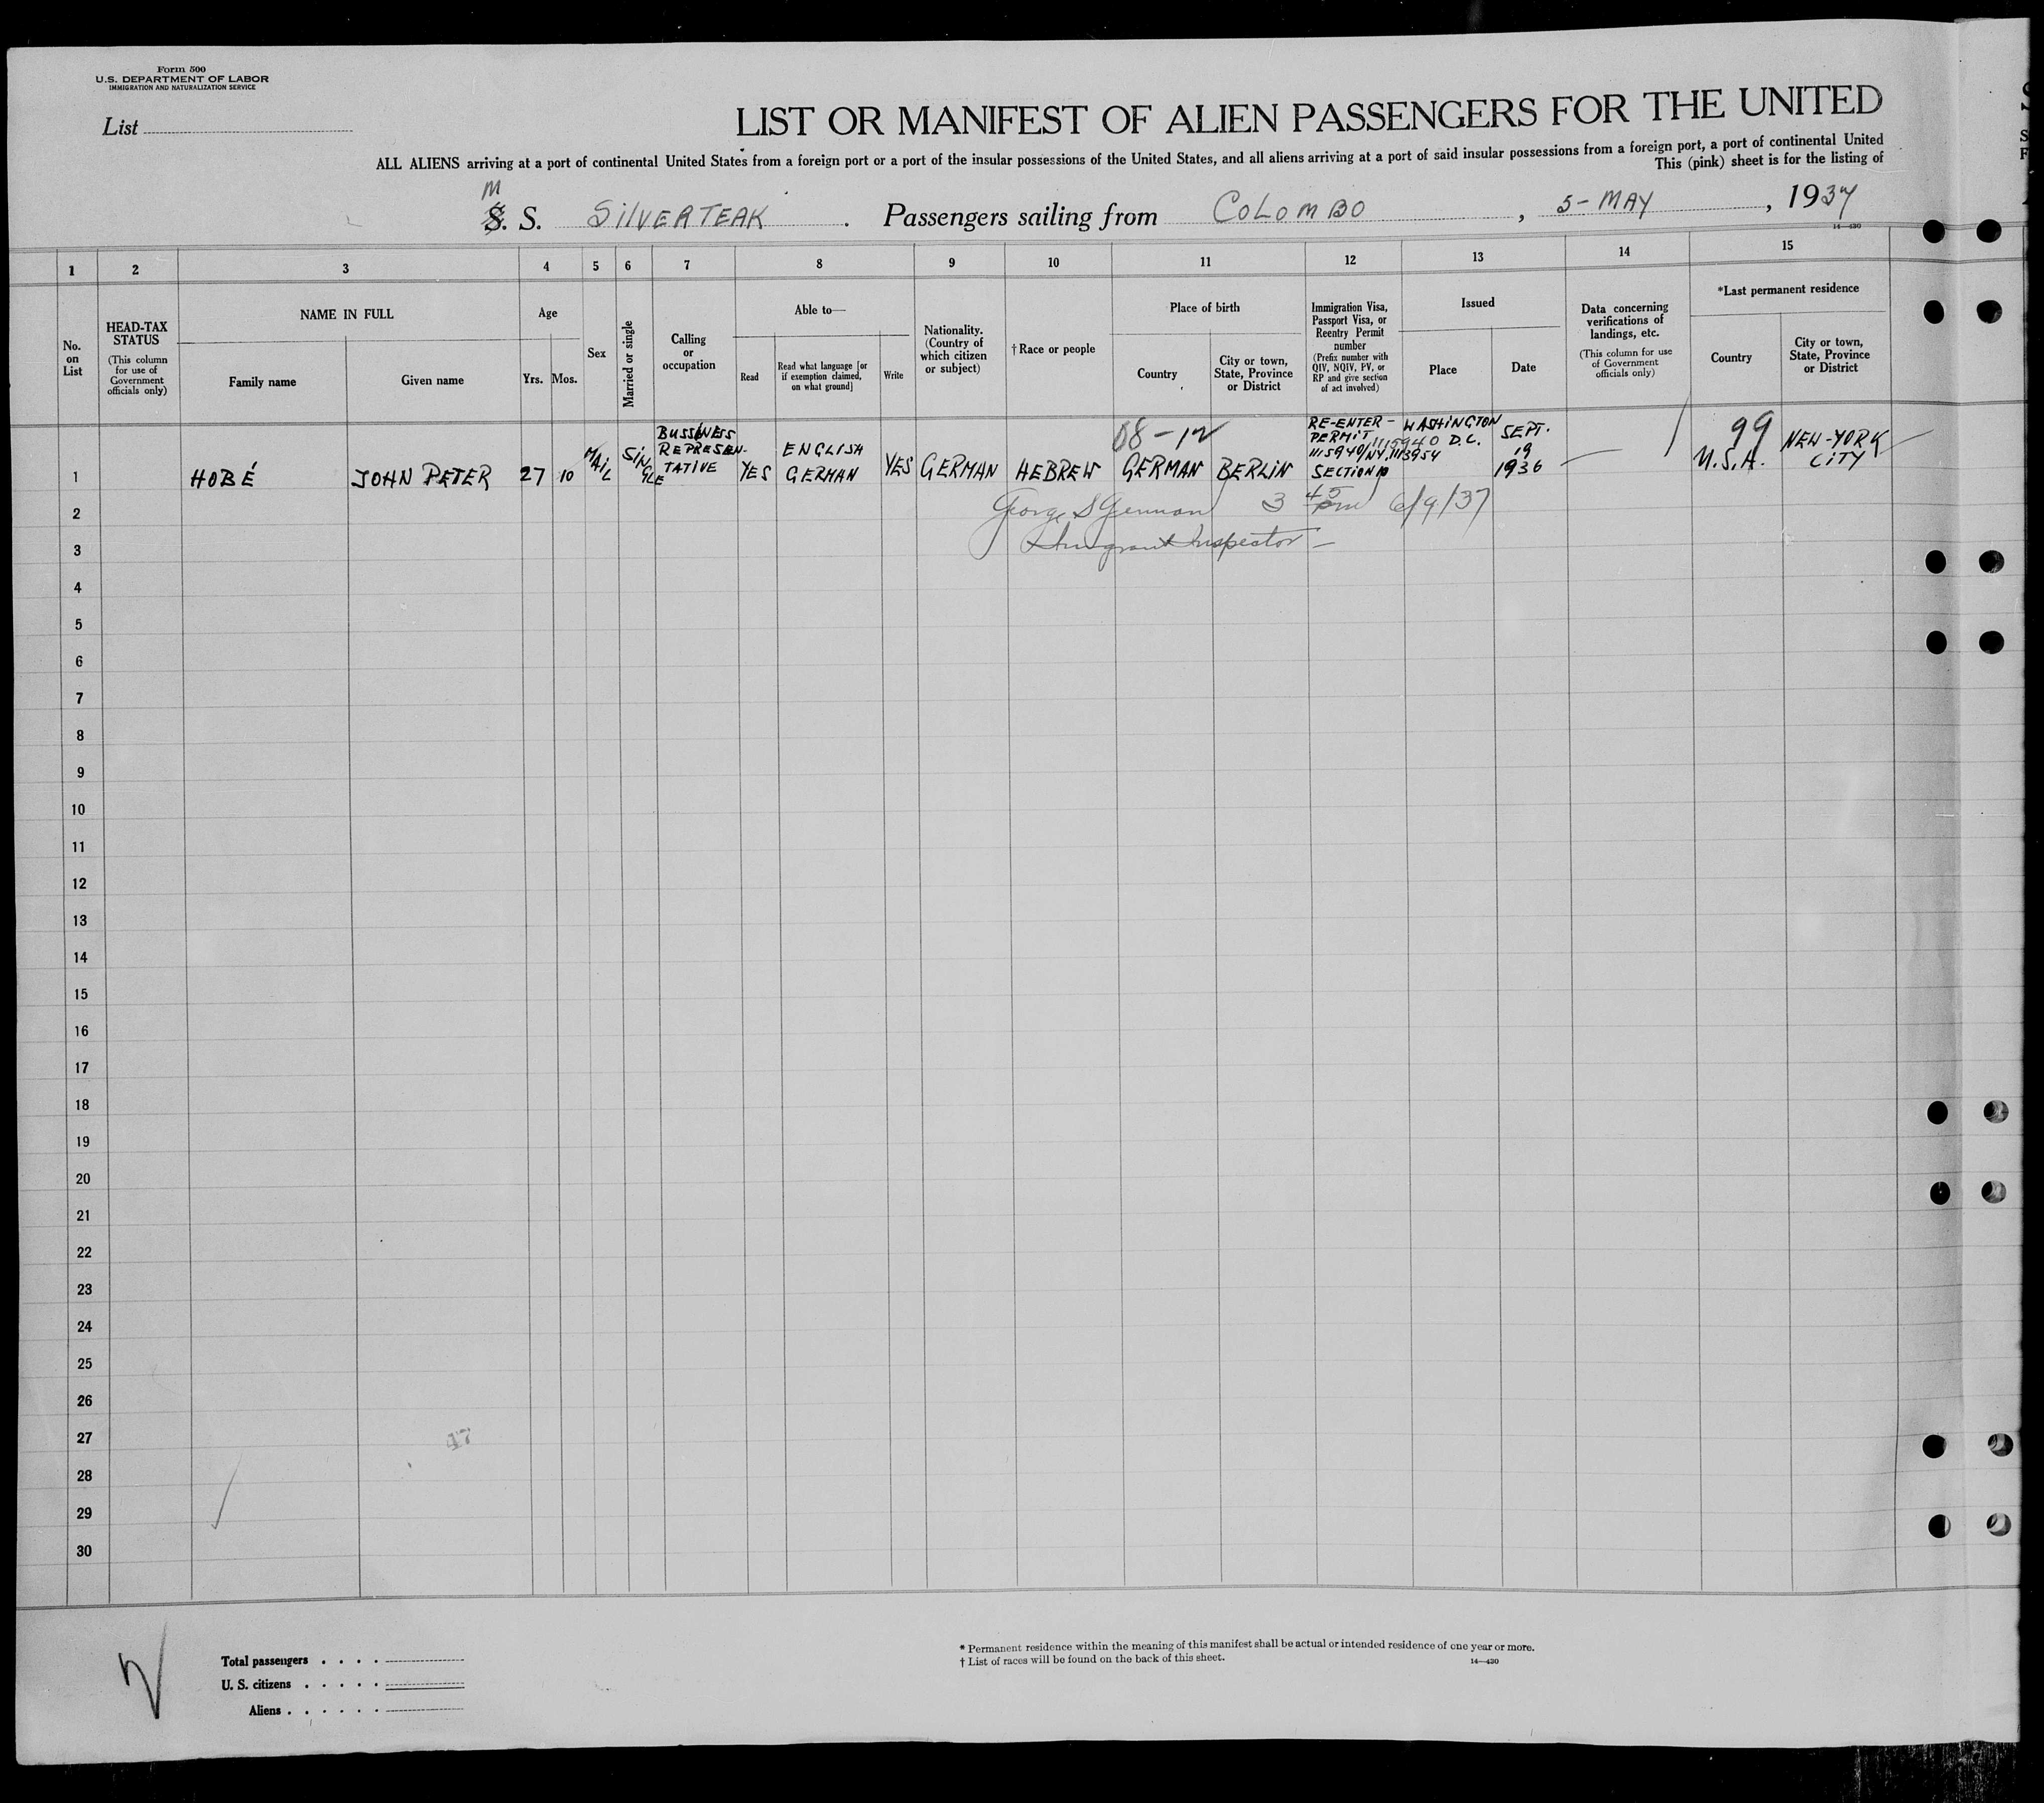 Form 500
U.S. DEPARTMENT OF LABOR
IMMIGRATION AND NATURALIZATION SERVICE
List
LIST OR MANIFEST OF ALIEN PASSENGERS FOR THE UNITED
ALL ALIENS arriving at a port of continental United States from a foreign port or a port of the insular possessions of the United States, and all aliens arriving at a port of said insular possessions from a foreign port, a port of continental United
This (pink) sheet is for the listing of
M
S. S. SILVERTEAK . Passengers sailing from COLOMBO , 5-MAY , 1937
14—430
1 2 3 4 5 6 7 8 9 10 11 12 13 14 15
No. on List
HEAD-TAX STATUS
(This column for use of Government officials only)
NAME IN FULL
Family name
Given name
Age
Yrs. Mos.
Sex
Married or single
Calling or occupation
Able to—
Read
Read what language [or if exemption claimed, on what ground]
Write
Nationality. (Country of which citizen or subject)
† Race or people
Place of birth
Country
City or town, State, Province or District
Immigration Visa, Passport Visa, or Reentry Permit number
(Prefix number with QIV, NQIV, PV, or RP and give section of act involved)
Issued
Place
Date
Data concerning verifications of landings, etc.
(This column for use of Government officials only)
*Last permanent residence
Country
City or town, State, Province or District
1
HOBÉ
JOHN PETER
27 10
MAIL
SINGLE
BUSSINESS
REPRESEN-
TATIVE
YES
ENGLISH
GERMAN
YES
GERMAN
HEBREW
08-12
GERMAN
BERLIN
RE-ENTER-
PERMIT 1115940
1115940/NY.1113954
SECTION 10
WASHINGTON
D.C.
SEPT.
19
1936
99
U.S.A.
NEW-YORK
CITY
2
George S 3 45 pm 6/9/37
3
Immigrant Inspector
4
5
6
7
8
9
10
11
12
13
14
15
16
17
18
19
20
21
22
23
24
25
26
27
47
28
29
30
Total passengers . . . .
U. S. citizens . . . . .
Aliens . . . . . .
* Permanent residence within the meaning of this manifest shall be actual or intended residence of one year or more.
† List of races will be found on the back of this sheet.
14—430